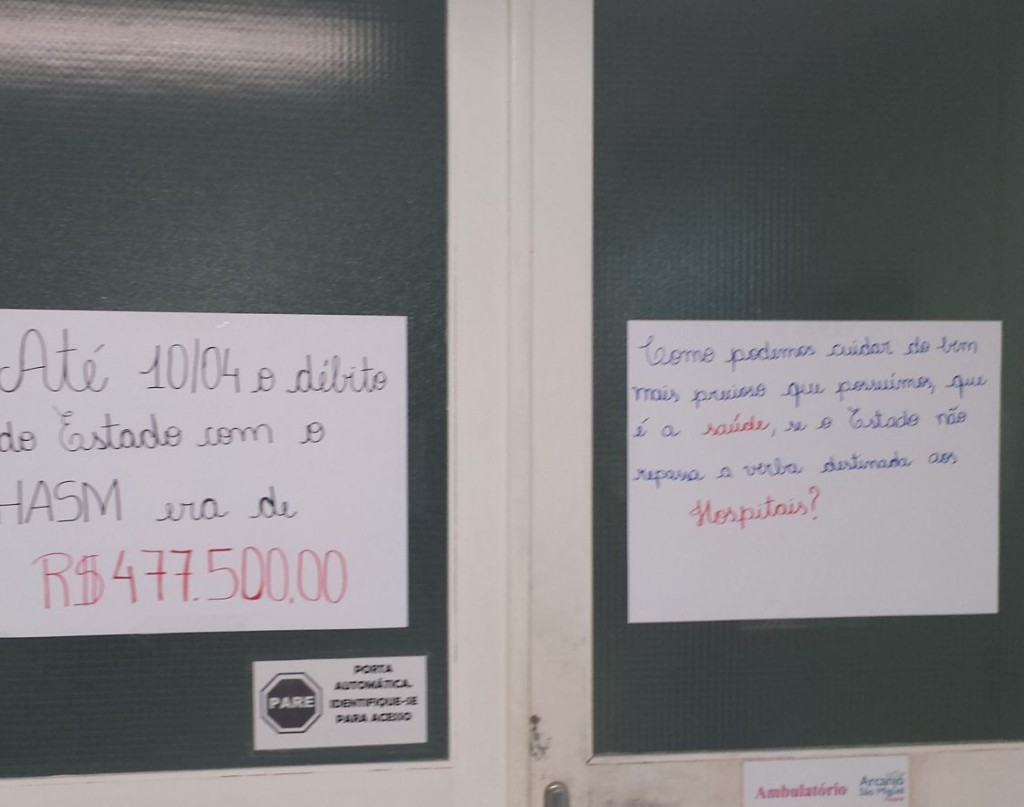 Até 10/04 o débito
do Estado com o
HASM era de
R$477.500,00
PARE
PORTA
AUTOMÁTICA.
IDENTIFIQUE-SE
PARA ACESSO
Como podemos cuidar do bem
mais precioso que possuímos, que
é a saúde, se o Estado não
repassa a verba destinada aos
Hospitais?
Ambulatório
Arcanjo
São Miguel